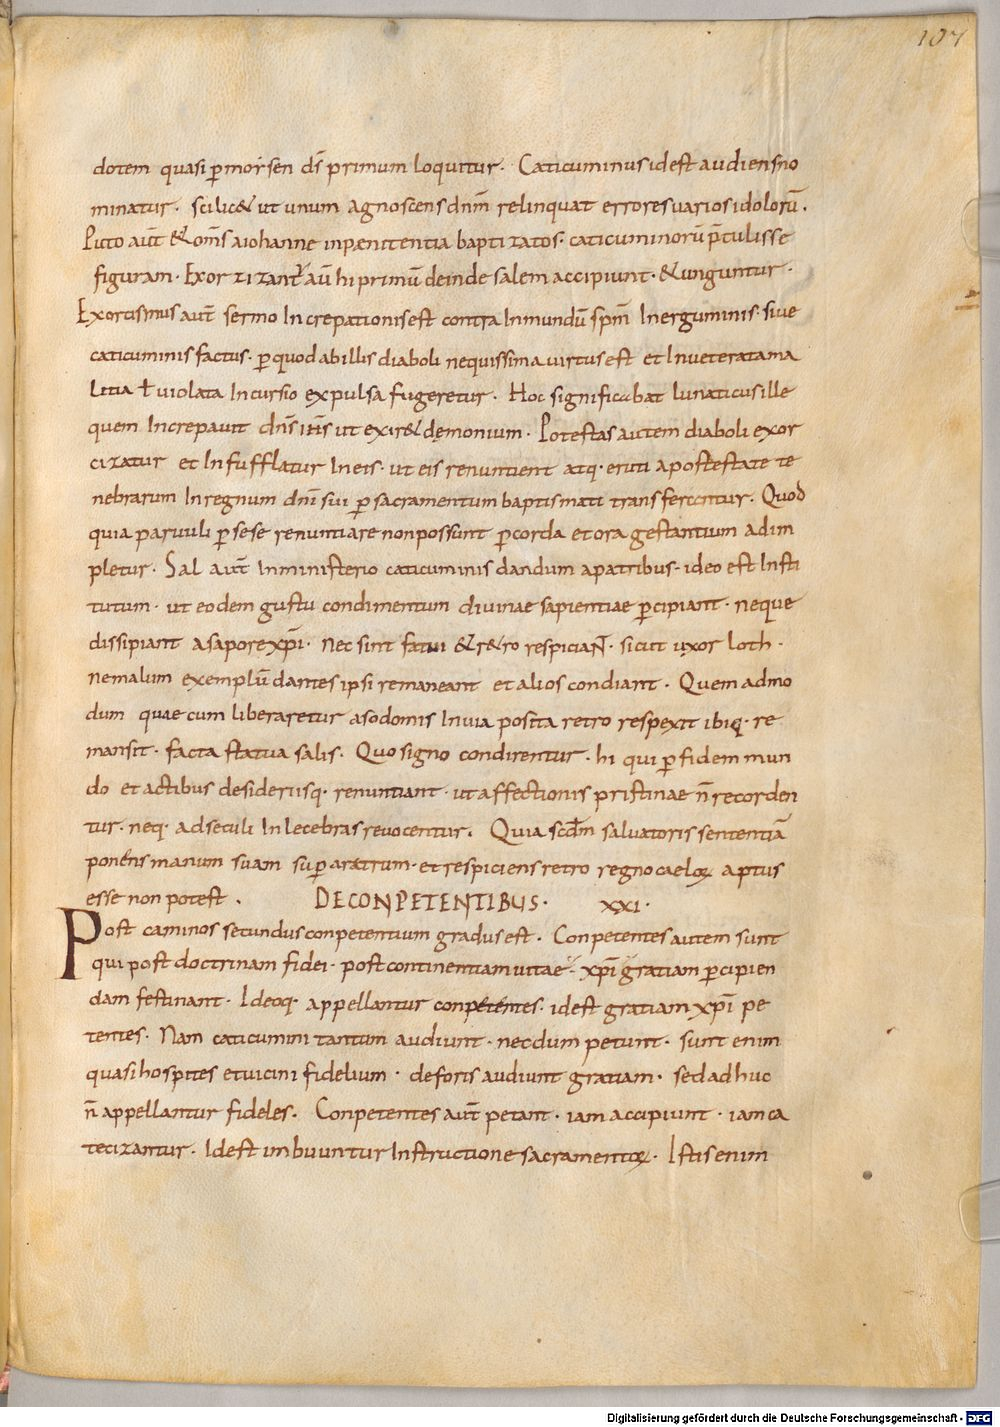 107
dotem quasi ꝑ morsen dš primum loquitur. Caticuminus idest audiens no
minatur. scilic& ut unum agnoscens dnm̄ relinquat errores uarios idolorū.
Puto aut̄ & oms̄ a iohanne in pænitentia baptizatos. caticuminorū p̄tulisse
figuram. Exorzizant̄ aū hi primū deinde salem accipiunt. & unguntur.
Exorcismus aut̄ sermo Increpationis est contra Inmundū spm̄ Inerguminis. siue
caticuminis factus. ꝑ quod ab illis diaboli nequissima uirtus est et Inueterata ma
litia ł uiolata Incursio expulsa fugeretur. Hoc significabat lunaticus ille
quem Increpauit dns̄ ihs̄ ut exir& demonium. Potestas autem diaboli exor
cizatur et Insufflatur In eis. ut eis renuntient atq. eruti a postestate te
nebrarum In regnum dnī sui ꝑ sacramentum baptismati transferentur. Quod
quia paruuli ꝑ sese renuntiare non possunt ꝑ corda et ora gestantium adim
pletur. Sal aut̄ In ministerio caticuminis dandum a patribus. ideo est Insti
tutum. ut eodem gustu condimentum diuinae sapientiae ꝑcipiant. neque
dissipiant a sapore xpī. nec sint fatui & r&ro respiciant. sicut uxor loth.
ne malum exemplū dantes ipsi remaneant et alios condiant. Quem admo
dum quae cum liberaretur a sodomis In uia posita retro respexit ibiq. re
mansit. facta statua salis. Quo signo condirentur. hi qui ꝑ fidem mun
do et actibus desideriisq. renuntiant. ut affectionis pristinae n̄ recorden
tur. neq. ad seculi Inlecebras reuocentur. Quia scdm̄ saluatoris sententiā
ponens manum suam suꝑ aratrum. et respiciens retro regno caeloꝝ aptus
esse non potest. DE CONPETENTIBUS. XXI.
Post caminos secundus conpetentium gradus est. Conpetentes autem sunt
qui post doctrinam fidei. post continentiam uitae. xpī gratiam ꝑcipien
dam festinant. Ideoq. appellantur conpetentes. idest gratiam xpī pe
tentes. Nam caticumini tantum audiunt. necdum petunt. sunt enim
quasi hospites et uicini fidelium. deforis audiunt gratiam. sed adhuc
n̄ appellantur fideles. Conpetentes aut̄ petant. iam accipiunt. iam ca
tecizantur. Idest imbuuntur Instructione sacramentoꝝ. Istis enim
Digitalisierung gefördert durch die Deutsche Forschungsgemeinschaft - DFG